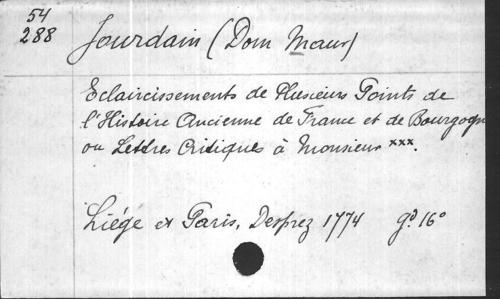 54
288
Jourdain (Dom Maur)
Eclaircissements de Plusieurs Points de
l'Histoire Ancienne de France et de Bourgogne
ou Lettres Critiques à Monsieur xxx.
Liége et Paris, Desprez 1774 gd 16°